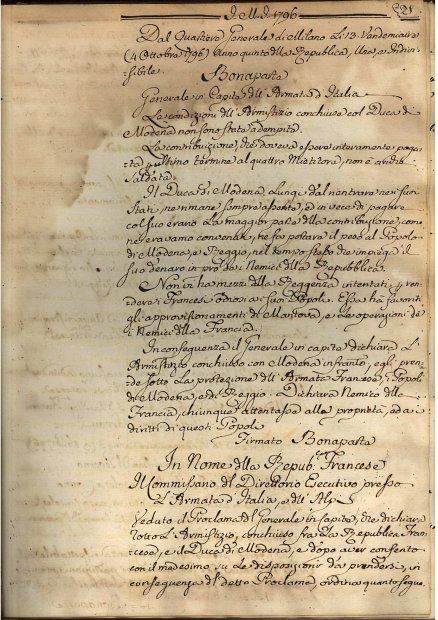 I. M. I. 1796
221
Dal Quartiere Generale di Milano Li 13. Vendemiaire
(4 Ottobre 1796) Anno quinto dlla Republica, Una, e Indivi-
sibile.
Bonaparte
Generale in Capite dll'Armata d'Italia
Le condizioni dll'Armistizio conchiuse col Duca di
Modena non sono state adempite.
La contribuzione, che doveva essere interamente paga-
ta ultimo termine al quattro Mietitore, non è
saldata.
Il Duca di Modena, Lungi dal rientrare nei suoi
Stati, ne rimane sempre assente, ed in vece di pagare
col suo erario La maggior parte dlla contribuzione, come
ne eravamo convenuti, ne fa portare il peso al Popolo
di Modena, e Reggio, nel tempo stesso che impiega il
suo denaro in pro de' Nemici dlla Repubblica.
Non vi ha mezzi dlla Reggenza intentati
rendere i Francesi odiosi ai suoi Popoli. Essa ha favoriti
gli approvisionamenti di Mantova, e Le operazioni de'
i Nemici dlla Francia.
In conseguenza il Generale in capite dichiara L'
Armistizio conchiuso con Modena infranto, egli pren-
de sotto La protezione dll'Armata Francese, i Popoli
di Modena, e di Reggio. Dichiara Nemico dlla
Francia, chiunque attentasse alla proprietà, ed ai
diritti di questi Popoli
Firmato Bonaparte
In Nome dlla Repub. Francese
Il Commissario dl Direttorio Esecutivo presso
L'Armata d'Italia, e dll'Alpi
Veduto il Proclama dl Generale in capite, che dichiara
rotto L'Armistizio, conchiuso fra La Republica Fran-
cese, e il Duca di Modena, e dopo aver consertato
con il medesimo su Le disposizioni da prendersi, in
conseguenza dl detto Proclama, ordina quanto segue.